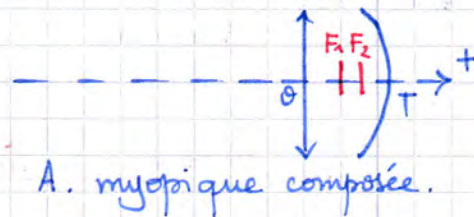 F₁ F₂ +
O T
A. myopique composée.